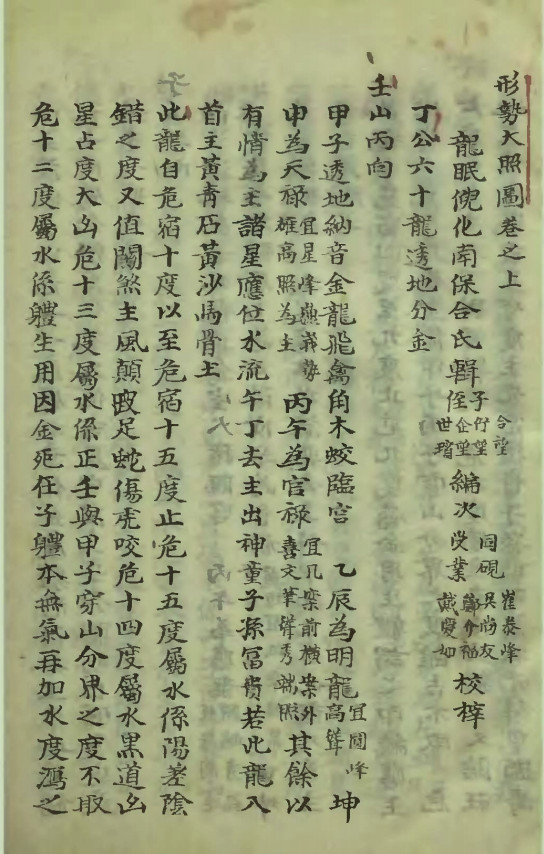 形勢大照圖卷之上
龍眠倪化南保合氏輯 子侄 行望 合望 企望 世瑠 編次 同硯受業 崔泰峰 吳尚友 鄭介福 戴變如 校梓
丁公六十龍透地分金
壬山丙向
甲子透地納音金龍飛禽角木蛟臨宮 乙辰為明龍 宜圓峰高聳 坤
申為天祿 宜星峰巍峩勢雄高照為主 丙午為官祿 宜几案前橫案外喜文筆聳秀端照 其餘以
有情為主諸星應位水流午丁去主出神童子孫富貴若此龍入
首主黃青石黃沙馬骨土
此龍自危宿十度以至危宿十五度止危十五度屬水係陽差陰
錯之度又值關煞主風顛跛足蛇傷虎咬危十四度屬水黑道凶
星占度大凶危十三度屬水係正壬與甲子穿山分界之度不取
危十二度屬水係體生用因金死在子體本無氣再加水度瀉之